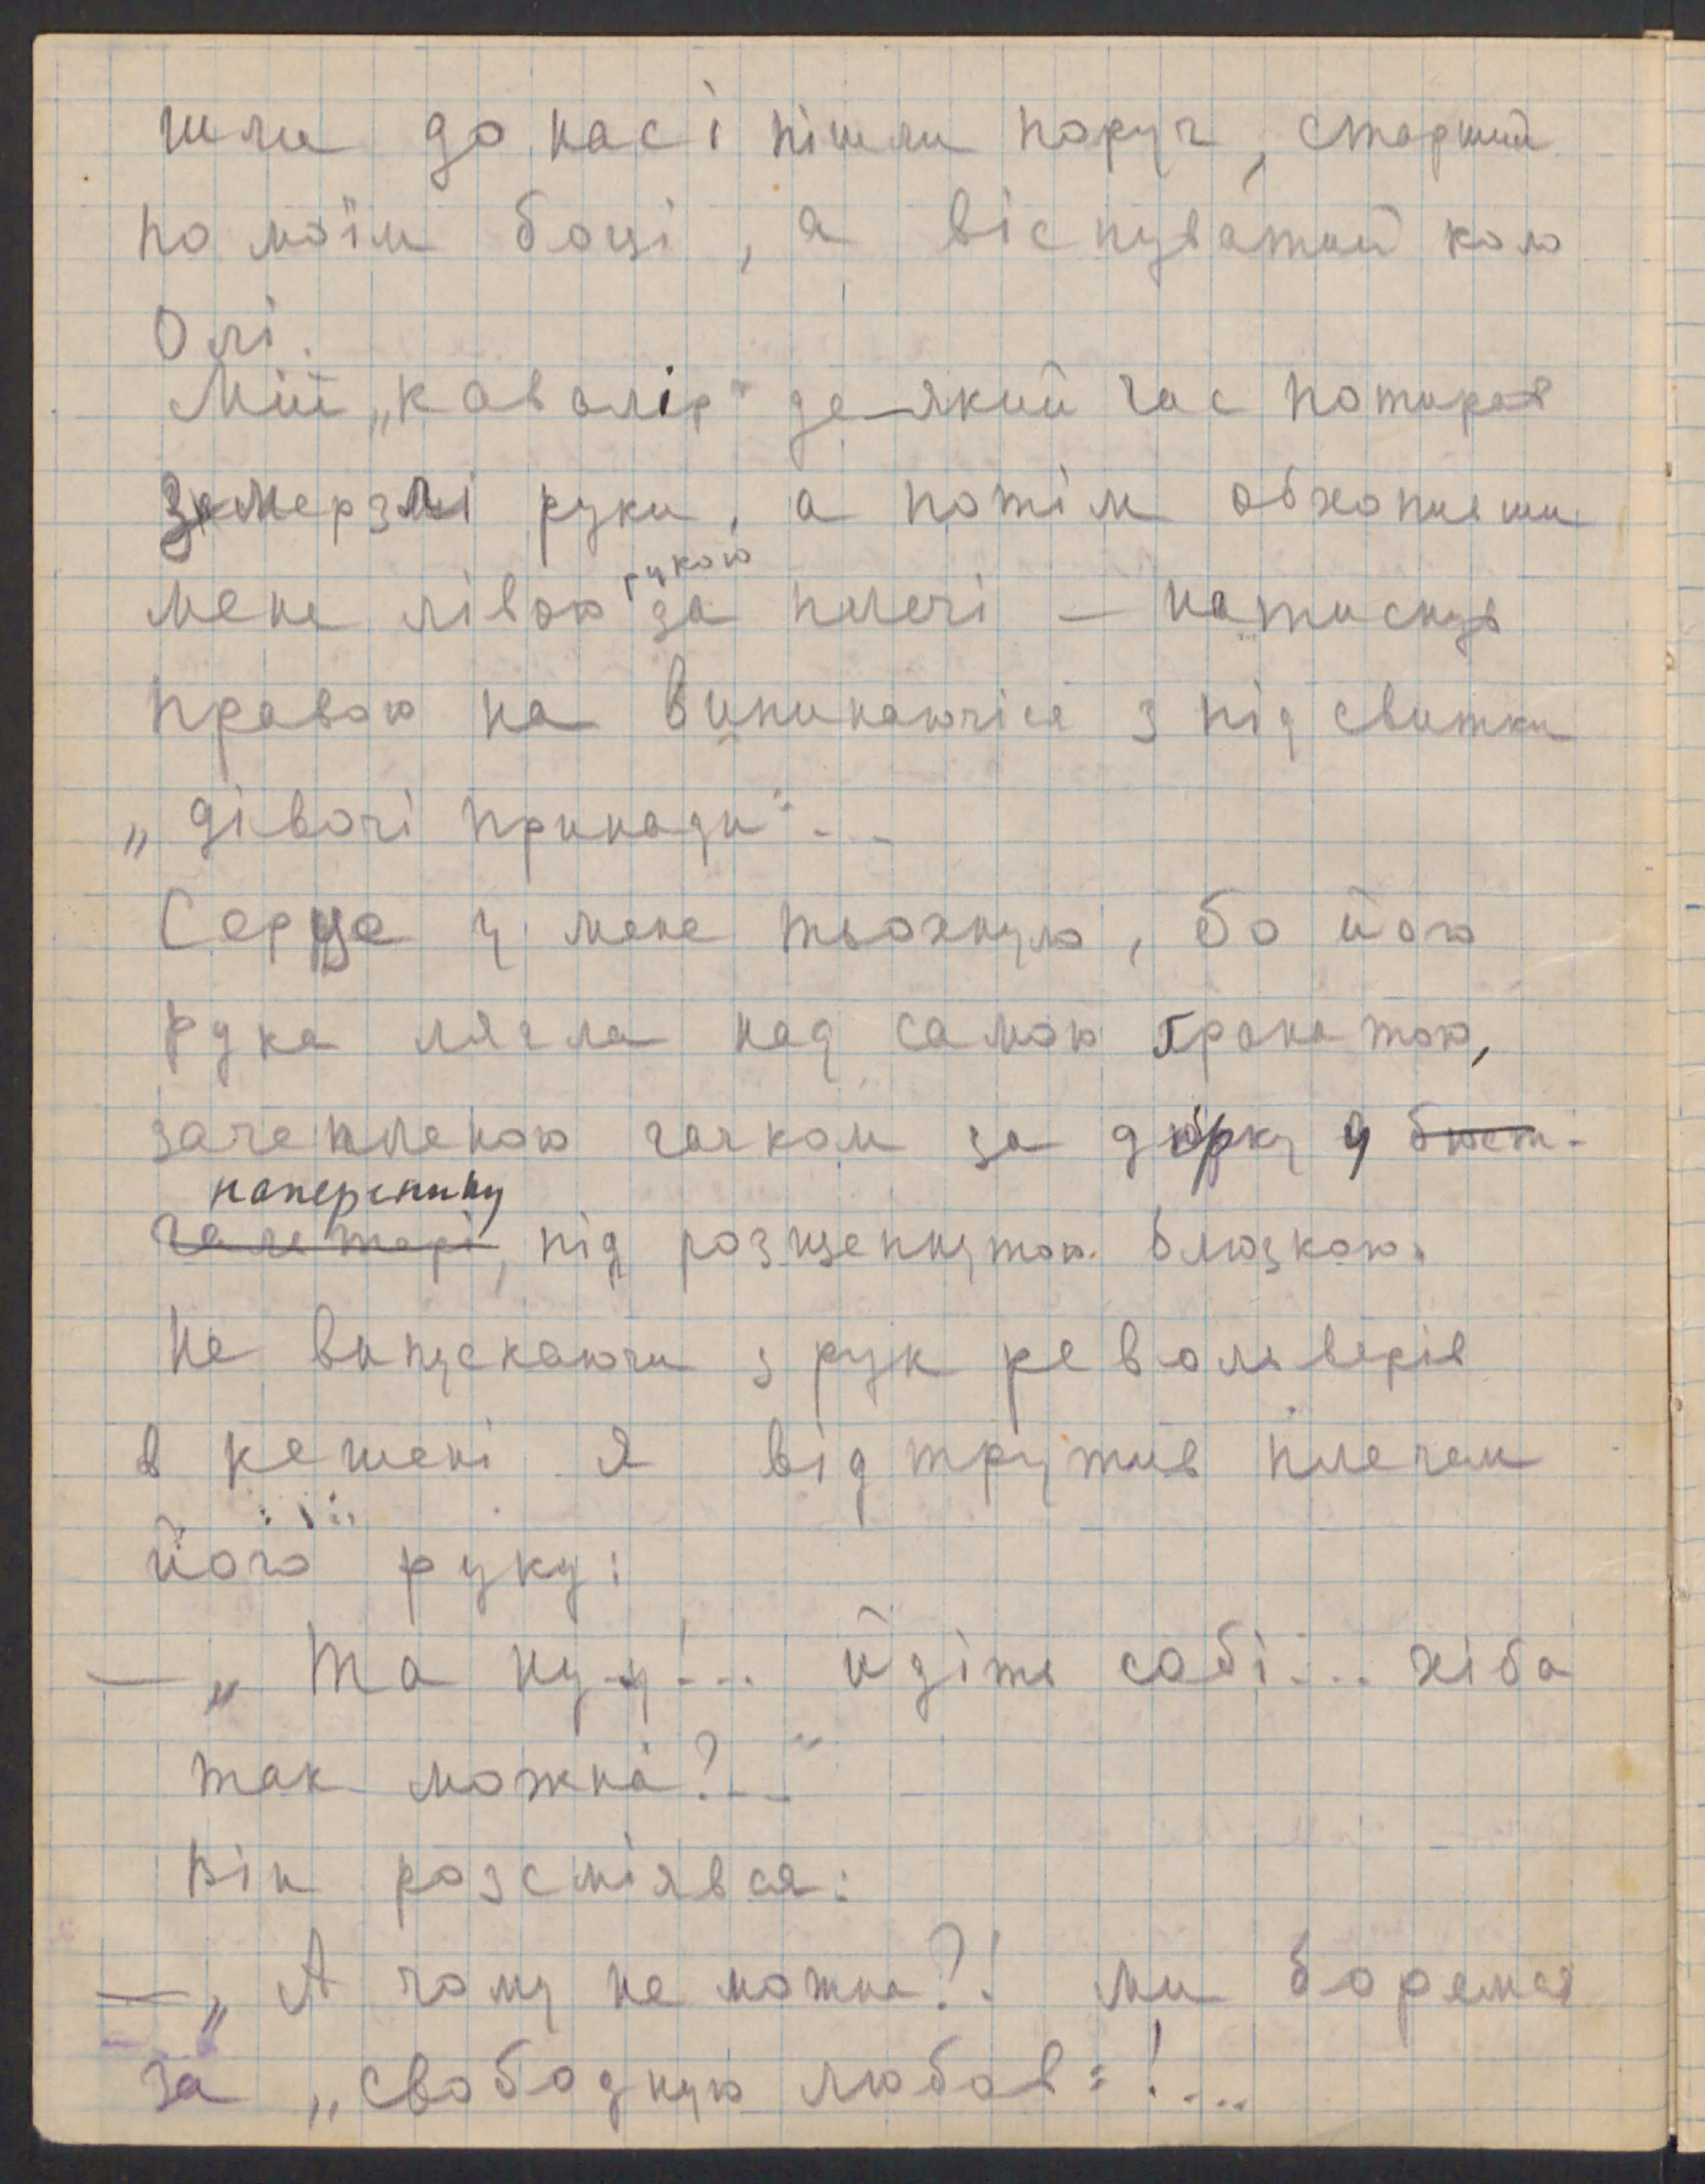 шли до нас і пішли поруч, старший
по моїм боці, а віспуватий коло
Олі.
Мій „кавалір“ де-який час потирав
замерзлі руки, а потім обхопивши
мене лівою рукою за плечі — натиснув
правою на випинаючіся з під свитки
„дівочі принади“...
Серце у мене тьохнуло, бо його
рука лягла над самою ґранатою,
зачепленою гачком за дірку у бюст-
галтері наперснику, під розщепнутою блюзкою.
Не випускаючи з рук револьверів
в кешені я відтрутив плечем
його руку:
— „Та ну-у!... йдіть собі... хіба
так можна?..“
Він розсміявся:
— „А чому не можна?! ми боремся
за „свободную любов“!...